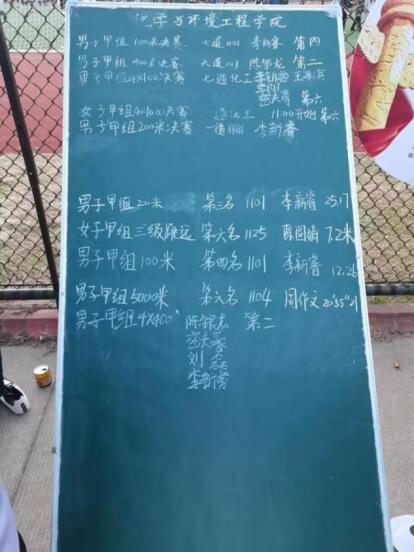 化学与环境工程学院
男子甲组100米决赛 七道1101 李新睿 第四
男子甲组400米决赛 六道1113 陈郅龙 第二
男子甲组4X100决赛 七道化工 李新睿
第六
女子甲组4X100决赛 一道化工 11:00开始 第六
男子甲组200米决赛 一道1101 李新睿
男子甲组200米 第三名 1101 李新睿 25.17
女子甲组三级跳远 第六名 1125 7.2米
男子甲组100米 第四名 1101 李新睿 12.26
男子甲组5000米 第六名 1104 周作文 20'55"21
男子甲组4X400 陈郅龙 第二
刘
李新睿